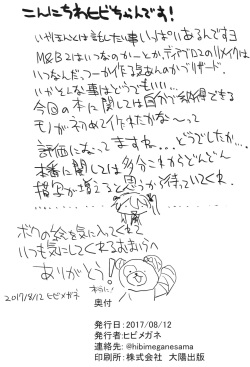 こんにちわヒビちゃんです!
いやほんとは話したい事いっぱいあるんですヨ
M&B2はいつなのかーとか、ディアブロ2のリメイクは
いつなんだ、つーか作る気あんのかブリザード
いやそんな事はどうでもいい・・・・
今回の本に関しては自分で納得できる
モノが初めて作れたかな~って
評価になってますね…、どうでしたか…
本番に関しては多分これからどんどん
増えると思うから待っていてくれ
ボクの絵を気に入ってくれて
いつも気にしてくれるおまいらへ
ありがとう!
2017/8/12 ヒビメガネ
奥付
発行日:2017/08/12
発行者:ヒビメガネ
連絡先:@hibimeganesama
印刷所:株式会社 大陽出版